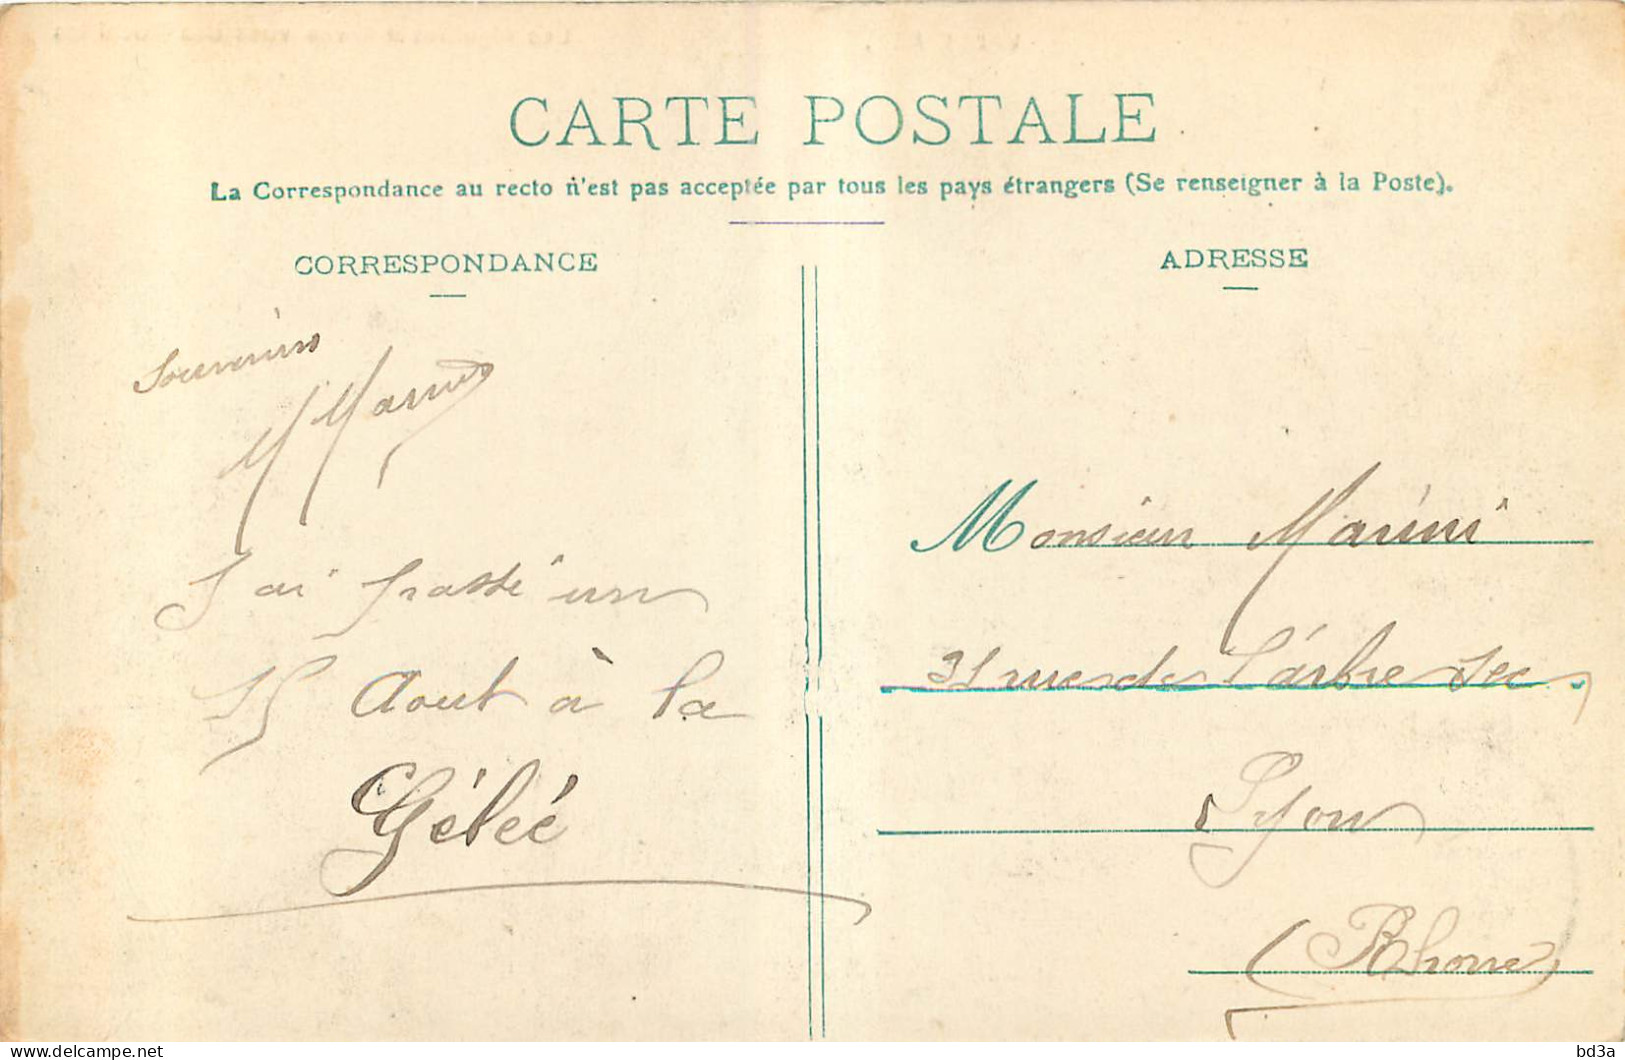 CARTE POSTALE
La Correspondance au recto n'est pas acceptée par tous les pays étrangers (Se renseigner à la Poste).
CORRESPONDANCE
Souvenirs
J'ai passé un
15 Aout à la
Gélée
ADRESSE
Monsieur Marini
31 rue de l'arbre sec
Lyon
(Rhone)
delcampe.net
bd3a